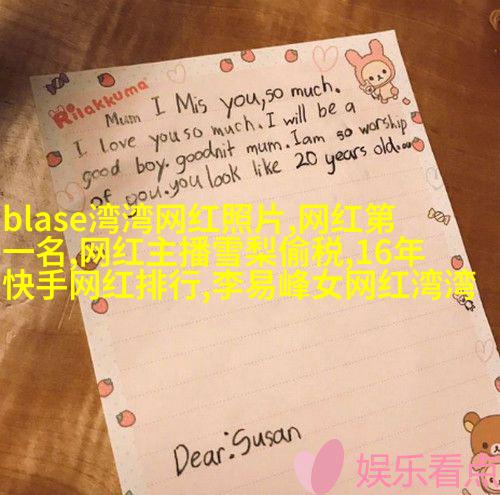 Rilakkuma
Mum I Mis you,so much.
I love you so much. I will be a
good boy. goodnit mum. Iam so worship
of you.you look like 20 years old.
blase湾湾网红照片,网红第
一名,网红主播雪梨偷税,16年
快手网红排行,李易峰女网红湾湾
Dear:Susan
娱乐看点